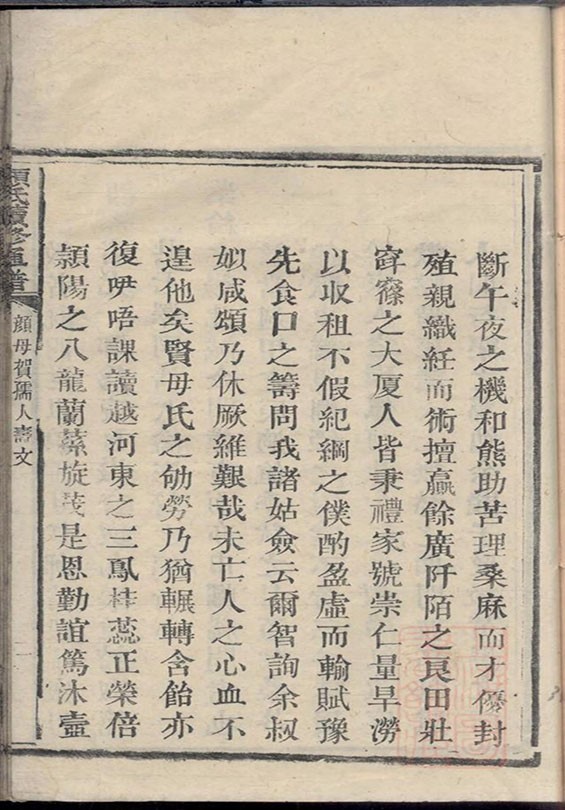 斷午夜之機和熊助苦理桑麻而才優封
殖親織紝而術擅贏餘廣阡陌之良田壯
窂窱之大厦人皆秉禮家號崇仁量旱澇
以收租不假紀綱之僕酌盈虛而輸賦豫
先食口之籌問我諸姑僉云爾智詢余叔
姒咸頌乃休厥維艱哉未亡人之心血不
遑他矣賢母氏之劬勞乃猶輾轉含飴亦
復咿唔課讀越河東之三鳳桂蕊正榮倍
潁陽之八龍蘭蓀旋茂是恩勤誼篤沐壼
顏氏續修通譜
顏母賀孺人壽文